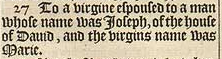 27 To a virgine espoused to a man
whose name was Joseph, of the house
of Dauid, and the virgins name was
Marie.